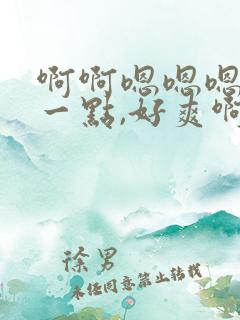 啊啊嗯嗯嗯
一點,好爽啊
徐男
未经同意禁止转载